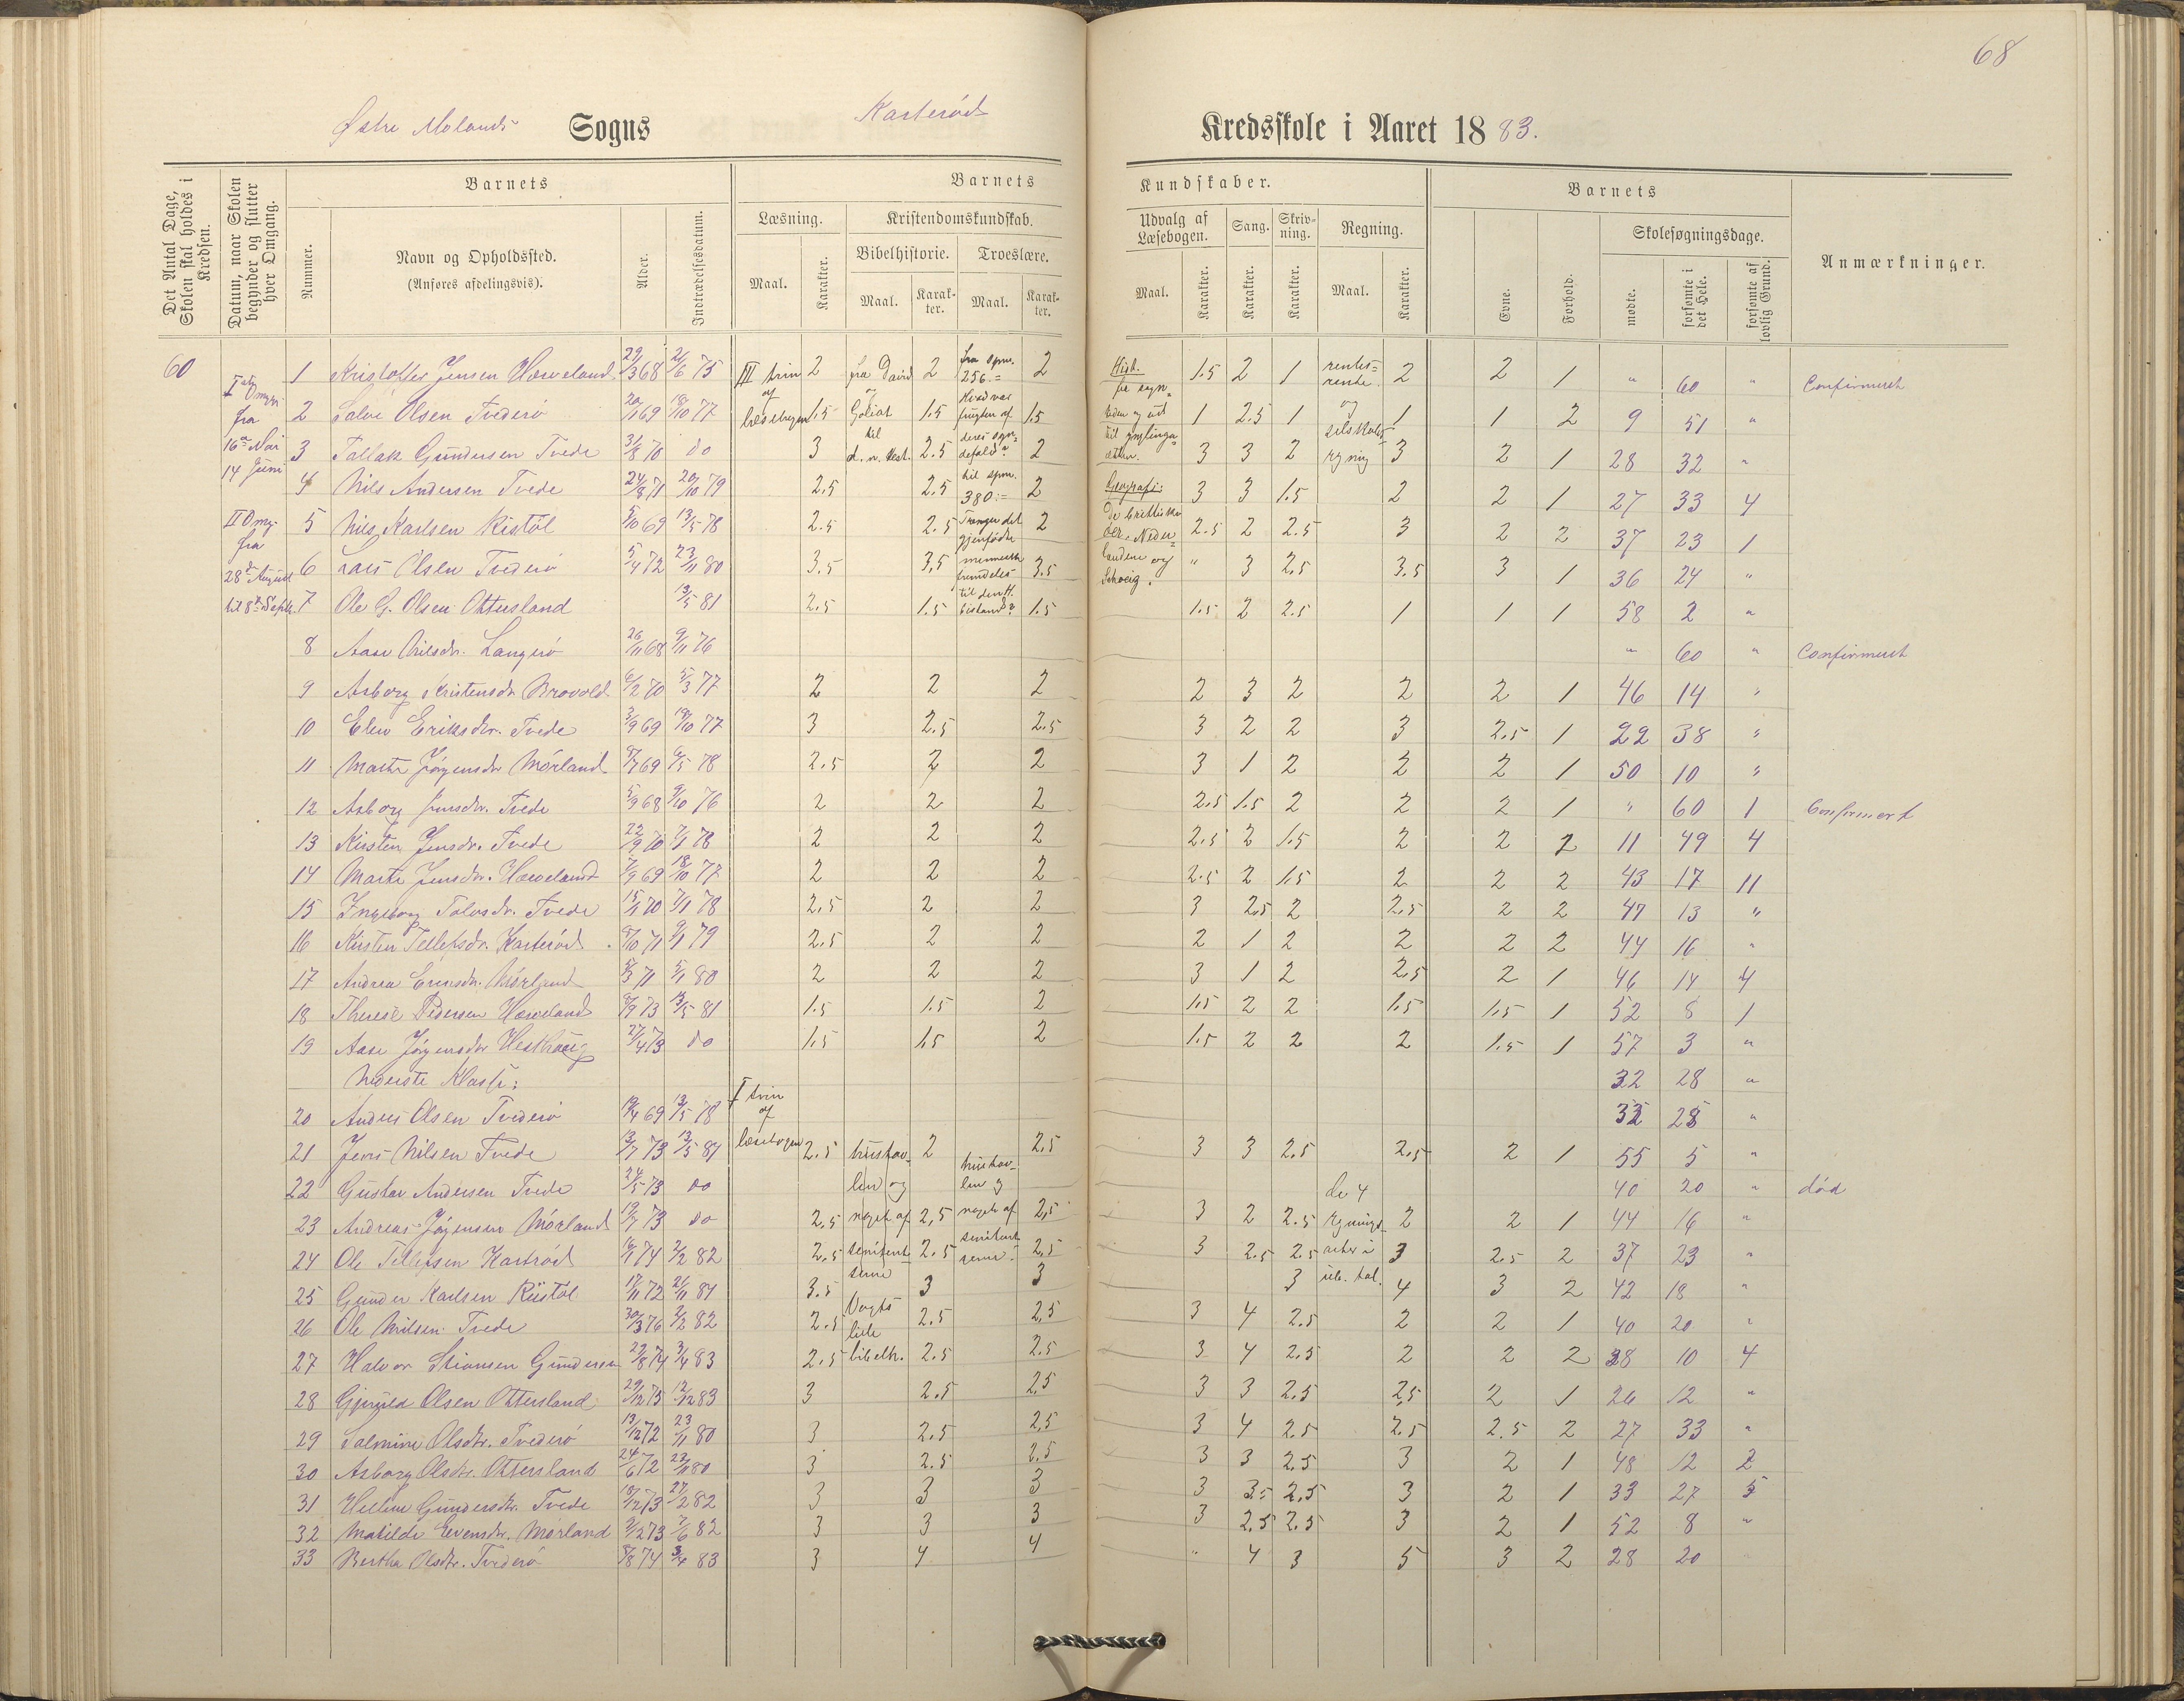 68
Østre Molands Sogns Karterød Kredsskole i Aaret 1883.
Det Antal Dage, Skolen skal holdes i Kredsen.
Datum, naar Skolen begynder og slutter hver Omgang.
Barnets
Nummer.
Navn og Opholdssted.
(Anføres afdelingsvis).
Alder.
Indtrædelsesdatum.
Barnets Kundskaber.
Læsning.
Maal.
Karakter.
Kristendomskundskab.
Bibelhistorie. Troeslære.
Maal. Karakter. Maal. Karakter.
Udvalg af Læsebogen.
Maal. Karakter.
Sang.
Karakter.
Skrivning.
Karakter.
Regning.
Maal. Karakter.
Barnets
Evne. Forhold.
Skolesøgningsdage.
mødte. forsømte i det Hele. forsømte af lovlig Grund.
Anmærkninger.
60
fra
16de Mai
14 Juni
II Omg.
fra
28de August
til 8de Septb.
III trin
af
læsebogen
fra David
og
Goliat
til
d. n. test.
fra spm.
256.=
Hvad var
frugten af
deres syn=
defald?
til spm.
380:=
Trænger det
gjenfødte
menneske
fremdeles
til den H.
bistand?
Hist.
til ynglinga=
ætten.
Geografi:
De brittiske
øer, Neder=
landene og
Schveig.
rentes=
rente
og
selskabs=
regning
1 Kristoffer Jensen Haveland 29/3 68 21/6 75 2 2 2 1.5 2 1 2 2 1 " 60 " Confirmeret
2 Salve Olsen Tvederø 20/1 69 18/10 77 1.5 1.5 1.5 1 2.5 1 1 1 2 9 51 "
3 Tallak Gundersen Tvede 31/8 70 do 3 2.5 2 3 3 2 3 2 1 28 32 "
4 Nils Andersen Tvede 24/8 71 20/10 79 2.5 2.5 2 3 3 1.5 2 2 1 27 33 4
5 Nils Karlsen Ristøl 5/10 69 13/5 78 2.5 2.5 2 2.5 2 2.5 3 2 2 37 23 1
6 Lars Olsen Tvederø 5/4 72 23/11 80 3.5 3,5 3.5 " 3 2.5 3.5 3 1 36 24 "
7 Ole G. Olsen Ottersland 13/5 81 2.5 1.5 1.5 1.5 2 2.5 1 1 1 58 2 "
8 Aase Nilsdr. Langerø 26/11 68 9/11 76 " 60 " Confirmeret
9 Asborg Kristensdr Brovold 6/2 70 5/3 77 2 2 2 2 3 2 2 2 1 46 14 "
10 Elen Eriksdtr. Tvede 3/9 69 19/10 77 3 2.5 2.5 3 2 2 3 2.5 1 22 38 "
11 Marte Jørgensdr Mørland 8/7 69 6/5 78 2.5 2 2 3 1 2 2 2 1 50 10 "
12 Asborg Jensdtr. Tvede 5/9 68 9/10 76 2 2 2 2.5 1.5 2 2 2 1 " 60 1 Confirmert
13 Kirsten Jensdr. Tvede 22/9 70 7/1 78 2 2 2 2.5 2 1.5 2 2 2 11 49 4
14 Marte Jensdtr. Haveland 7/9 69 18/10 77 2 2 2 2.5 2 1.5 2 2 2 43 17 11
15 Ingeborg Talosdr. Tvede 15/1 70 7/1 78 2,5 2 2 3 2.5 2 2.5 2 2 47 13 "
16 Kirsten Tellefsdr. Karterød 8/10 71 9/1 79 2.5 2 2 2 1 2 2 2 2 44 16 "
17 Andrea Evensdr. Mørland 5/3 71 5/1 80 2 2 2 3 1 2 2,5 2 1 46 14 4
18 Therese Pedersen Haveland 8/9 73 13/5 81 1.5 1.5 2 1.5 2 2 1.5 1.5 1 52 8 1
19 Aase Jørgensdr Hesthaug 27/4 73 do 1.5 1.5 2 1.5 2 2 2 1.5 1 57 3 "
Nederste Klasse: 32 28 "
I trin
af
læsebogen
20 Anders Olsen Tvederø 19/4 69 13/5 78 32 28 "
21 Jens Nilsen Tvede 13/7 73 13/5 81 2.5 2 2,5 3 3 2.5 2.5 2 1 55 5 "
22 Gustav Andersen Tvede 24/5 73 do 40 20 " død
23 Andreas Jørgensen Mørland 19/7 73 do 2.5 2,5 2,5 3 2 2.5 2 2 1 44 16 "
24 Ole Tellefsen Karterød 16/1 74 2/2 82 2.5 2.5 2,5 3 2.5 2.5 3 2.5 2 37 23 "
25 Gunder Karlsen Ristøl 17/11 72 26/11 81 3.5 3 3 3 4 3 2 42 18 "
26 Ole Nilsen Tvede 30/3 76 2/2 82 2.5 2.5 2,5 3 4 2.5 2 2 1 40 20 "
27 Halvor Stiansen Gundersen 29/8 74 3/4 83 2.5 2.5 2.5 3 4 2.5 2 2 2 38 10 4
28 Gjeruld Olsen Ottersland 29/12 75 12/12 83 3 2.5 2,5 3 3 2.5 2,5 2 1 26 12 "
29 Salmine Olsdtr. Tvederø 19/12 72 23/11 80 3 2.5 2,5 3 4 2.5 2.5 2.5 2 27 33 "
30 Asborg Olsdtr. Ottersland 24/6 72 23/11 80 3 2.5 2.5 3 3 2.5 3 2 1 48 12 2
31 Helene Gundersdtr. Tvede 18/12 73 27/2 82 3 3 3 3 3.5 2.5 3 2 1 33 27 5
32 Matilde Evensdtr. Mørland 3/2 73 7/6 82 3 3 3 3 2.5 2.5 3 2 1 52 8 "
33 Bertha Olsdtr. Tvederø 8/8 74 3/4 83 3 4 4 " 4 3 5 3 2 28 20
hustav=
len og
noget af
Vogts
lille
bibelh.
hustav=
len og
noget af
de 4
regnings=
arter i